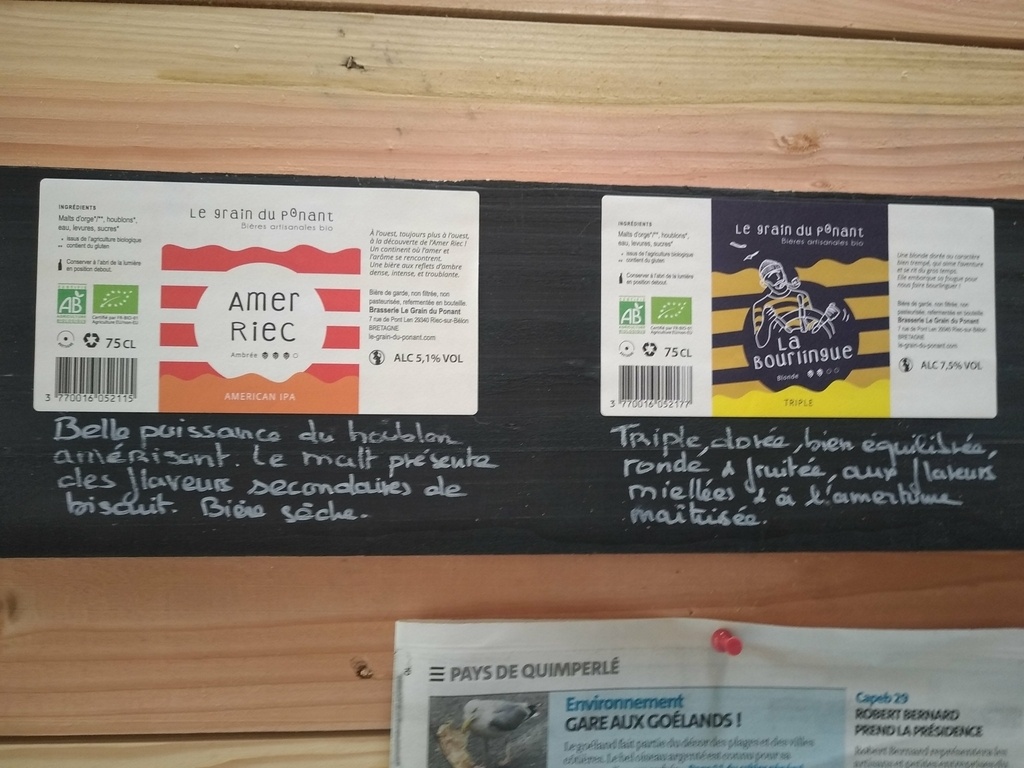 INGRÉDIENTS
Malts d'orge*/**, houblons*,
eau, levures, sucres*
* issus de l'agriculture biologique
** contient du gluten
Conserver à l'abri de la lumière
en position debout.
AB
AGRICULTURE BIOLOGIQUE
Certifié par FR-BIO-01
75 CL
3 770016 052115
Le grain du Ponant
Bières artisanales bio
AMER
RIEC
Ambrée
AMERICAN IPA
À l'ouest, toujours plus à l'ouest,
à la découverte de l'Amer Riec !
Un continent où l'amer et
l'arôme se rencontrent.
Une bière aux reflets d'ambre
dense, intense, et troublante.
Bière de garde, non filtrée, non
pasteurisée, refermentée en bouteille.
Brasserie Le Grain du Ponant
7 rue de Pont Len 29340 Riec-sur-Bélon
BRETAGNE
le-grain-du-ponant.com
ALC 5,1% VOL
Belle puissance du houblon
amérisant. Le malt présente
des flaveurs secondaires de
biscuit. Bière sèche.
INGRÉDIENTS
Malts d'orge*/**, houblons*,
eau, levures, sucres*
* issus de l'agriculture biologique
** contient du gluten
Conserver à l'abri de la lumière
en position debout.
AB
Certifié par FR-BIO-01
75 CL
3 770016 052177
Le grain du Ponant
Bières artisanales bio
LA
BOURLINGUE
Blonde
TRIPLE
Une blonde dorée au caractère
bien trempé, qui aime l'aventure
et se rit du gros temps.
Elle embarque sa fougue pour
nous faire bourlinguer !
Bière de garde, non filtrée, non
pasteurisée, refermentée en bouteille.
Brasserie Le Grain du Ponant
7 rue de Pont Len 29340 Riec-sur-Bélon
BRETAGNE
le-grain-du-ponant.com
ALC 7,5% VOL
Triple, dorée, bien équilibrée,
ronde & fruitée, aux flaveurs
miellées & à l'amertume
maîtrisée.
PAYS DE QUIMPERLÉ
Environnement
GARE AUX GOÉLANDS !
Le goéland fait partie du décor des plages et des villes
côtières. Le bel oiseau argenté est connu pour sa
Capeb 29
ROBERT BERNARD
PREND LA PRÉSIDENCE
Robert Bernard représentera les
artisans et petites entreprises du